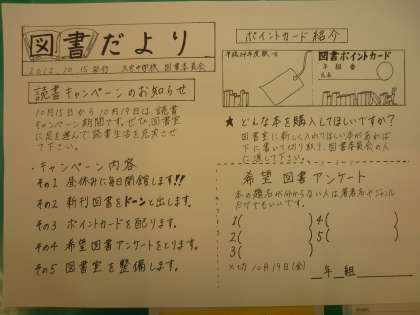 図書だより
2012.10.15発行 図書委員会
読書キャンペーンのお知らせ
10月15日から10月19日は、読書
キャンペーン期間です。ぜひ、図書室
に足を運んで読書生活を充実させ
て下さい。
・キャンペーン内容
その1 昼休みに毎日開館します!!
その2 新刊図書をドーンと出します。
その3 ポイントカードを配ります。
その4 希望図書アンケートをとります。
その5 図書室を整備します。
ポイントカード紹介
平成24年度
図書ポイントカード
年 組 番
氏名
★ どんな本を購入してほしいですか?
図書室に新しく入れてほしい本があれば
下に書いて切り取り、図書委員会の人
に渡して下さい。
希望図書アンケート
本の題名が分からない人は著者名やジャンル
だけでもいいです。
1( )
2( )
3( )
4( )
5( )
〆切 10月19日(金)
年 組( )